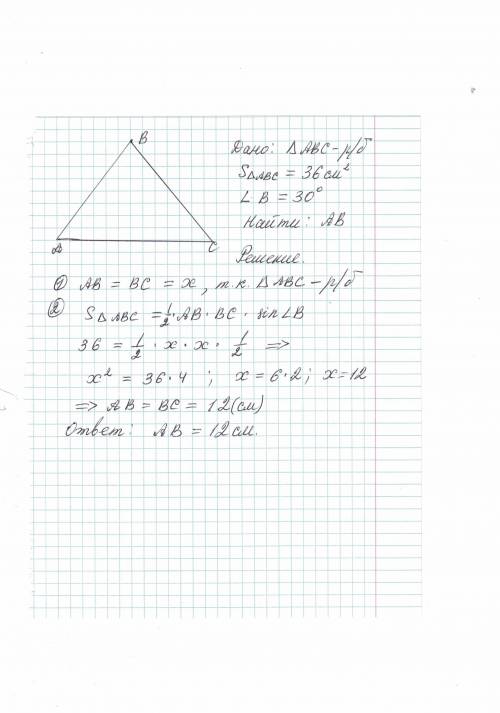 B
A
C
Дано: ΔABC - р/б
SΔABC = 36 см²
∠B = 30°
Найти: AB
Решение.
① AB = BC = x, т.к. ΔABC - р/б
② SΔABC = 1/2 · AB · BC · sin∠B
36 = 1/2 · x · x · 1/2 =>
x² = 36 · 4 ; x = 6 · 2 ; x = 12
=> AB = BC = 12 (см)
Ответ: AB = 12 см.